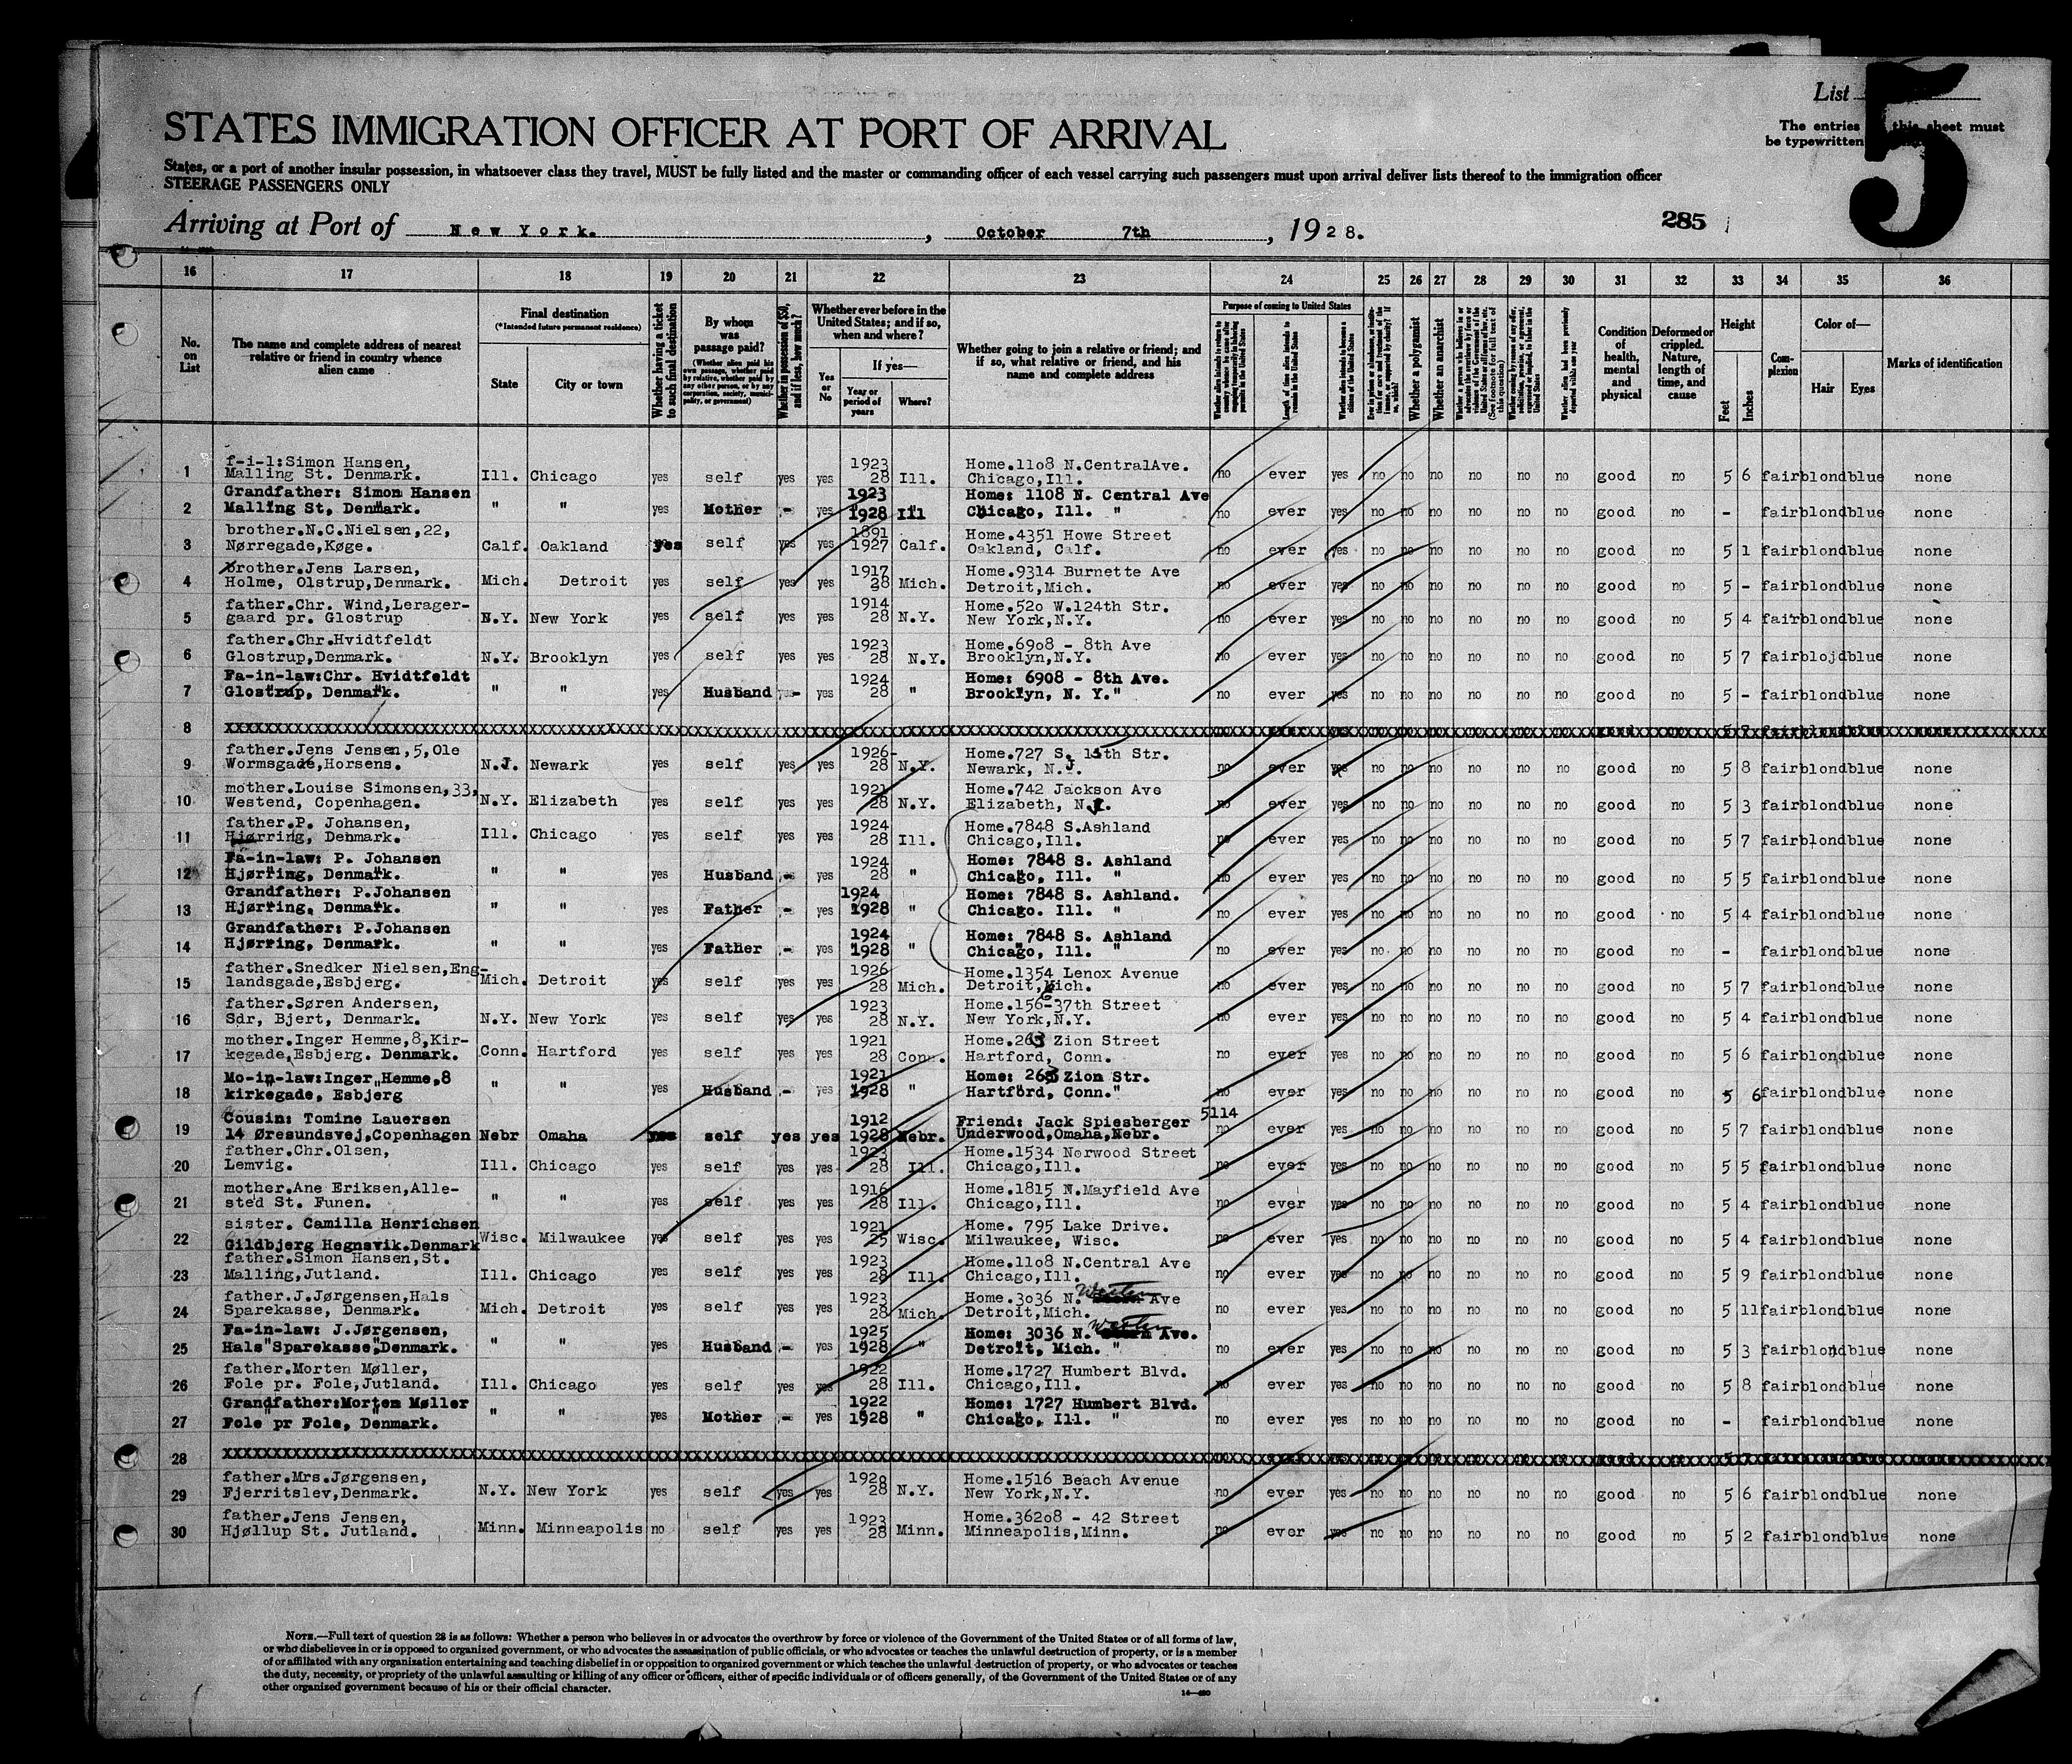 List
5
The entries this sheet must
be typewritten
STATES IMMIGRATION OFFICER AT PORT OF ARRIVAL
States, or a port of another insular possession, in whatsoever class they travel, MUST be fully listed and the master or commanding officer of each vessel carrying such passengers must upon arrival deliver lists thereof to the immigration officer
STEERAGE PASSENGERS ONLY
Arriving at Port of New York. , October 7th , 1928.
285
16 17 18 19 20 21 22 23 24 25 26 27 28 29 30 31 32 33 34 35 36
No. on List
The name and complete address of nearest relative or friend in country whence alien came
Final destination
(*Intended future permanent residence)
State
City or town
Whether having a ticket to such final destination
By whom was passage paid?
(Whether alien paid his own passage, whether paid by relative, whether paid by any other person, or by any corporation, society, municipality, or government)
Whether in possession of $50, and if less, how much?
Whether ever before in the United States; and if so, when and where?
Yes or No
If yes—
Year or period of years
Where?
Whether going to join a relative or friend; and if so, what relative or friend, and his name and complete address
Purpose of coming to United States
Length of time alien intends to remain in the United States
Whether alien intends to become a citizen of the United States
Whether a polygamist
Whether an anarchist
Whether alien had been previously deported within one year
Condition of health, mental and physical
Deformed or crippled. Nature, length of time, and cause
Height
Feet
Inches
Complexion
Color of—
Hair
Eyes
Marks of identification
1 f-i-l:Simon Hansen, Malling St. Denmark. Ill. Chicago yes self yes yes 1923 28 Ill. Home.11o8 N.CentralAve. Chicago,Ill. no ever yes no no no no no no good no 5 6 fair blond blue none
2 Grandfather: Simon Hansen Malling St, Denmark. " " yes Mother - yes 1923 1928 Ill Home: 1108 N. Central Ave Chicago, Ill. " no ever yes no no no no no no good no - fair blond blue none
3 brother.N.C.Nielsen,22, Nørregade,Køge. Calf. Oakland yes self yes yes 1891 1927 Calf. Home.4351 Howe Street Oakland, Calf. no ever yes no no no no no no good no 5 1 fair blond blue none
4 brother.Jens Larsen, Holme, Olstrup,Denmark. Mich. Detroit yes self yes yes 1917 28 Mich. Home.9314 Burnette Ave Detroit,Mich. no ever yes no no no no no no good no 5 - fair blond blue none
5 father.Chr. Wind,Lerager- gaard pr. Glostrup N.Y. New York yes self yes yes 1914 28 N.Y. Home.52o W.124th Str. New York,N.Y. no ever yes no no no no no no good no 5 4 fair blond blue none
6 father.Chr.Hvidtfeldt Glostrup,Denmark. N.Y. Brooklyn yes self yes yes 1923 28 N.Y. Home.69o8 - 8th Ave Brooklyn,N.Y. no ever yes no no no no no no good no 5 7 fair blojd blue none
7 Fa-in-law:Chr. Hvidtfeldt Glostrup, Denmark. " " yes Husband yes- yes 1924 28 " Home: 6908 - 8th Ave. Brooklyn, N. Y." no ever yes no no no no no no good no 5 - fair blond blue none
8
9 father.Jens Jensen,5,Ole Wormsgade,Horsens. N.J. Newark yes self yes yes 1926- 28 N.Y. Home.727 S. 15th Str. Newark, N.J. no ever yes no no no no no no good no 5 8 fair blond blue none
10 mother.Louise Simonsen,33, Westend, Copenhagen. N.Y. Elizabeth yes self yes yes 1921 28 N.Y. Home.742 Jackson Ave Elizabeth, N.J. no ever yes no no no no no no good no 5 3 fair blond blue none
11 father.P. Johansen, Hjørring, Denmark. Ill. Chicago yes self yes yes 1924 28 Ill. Home.7848 S.Ashland Chicago,Ill. no ever yes no no no no no no good no 5 7 fair blond blue none
12 Fa-in-law: P. Johansen Hjørring, Denmark. " " yes Husband - yes 1924 28 " Home: 7848 S. Ashland Chicago, Ill. " no ever yes no no no no no no good no 5 5 fair blond blue none
13 Grandfather: P.Johansen Hjørring, Denmark. " " yes Father - yes 1924 1928 " Home: 7848 S. Ashland. Chicago. Ill. " no ever yes no no no no no no good no 5 4 fair blond blue none
14 Grandfather: P.Johansen Hjørring, Denmark. " " yes Father - yes 1924 1928 " Home: 7848 S. Ashland Chicago, Ill. " no ever yes no no no no no no good no - fair blond blue none
15 father.Snedker Nielsen,Eng- landsgade,Esbjerg. Mich. Detroit yes self yes yes 1926 28 Mich. Home.1354 Lenox Avenue Detroit,Mich. no ever yes no no no no no no good no 5 7 fair blond blue none
16 father.Søren Andersen, Sdr, Bjert, Denmark. N.Y. New York yes self yes yes 1923 28 N.Y. Home.156-37th Street New York,N.Y. no ever yes no no no no no no good no 5 4 fair blond blue none
17 mother.Inger Hemme,8,Kir- kegade,Esbjerg. Denmark. Conn. Hartford yes self yes yes 1921 28 Conn. Home.263 Zion Street Hartford, Conn. no ever yes no no no no no no good no 5 6 fair blond blue none
18 Mo-in-law:Inger Hemme,8 kirkegade, Esbjerg " " yes Husband - yes 1921 1928 " Home: 263 Zion Str. Hartford, Conn." no ever yes no no no no no no good no 5 6 fair blond blue none
19 Cousin: Tomine Lauersen 14 Øresundsvej,Copenhagen Nebr Omaha yes self yes yes 1912 1928 Nebr. Friend: Jack Spiesberger 5114 Underwood,Omaha,Nebr. no ever yes no no no no no no good no 5 7 fair blond blue none
20 father.Chr.Olsen, Lemvig. Ill. Chicago yes self yes yes 1923 28 Ill. Home.1534 Norwood Street Chicago,Ill. no ever yes no no no no no no good no 5 5 fair blond blue none
21 mother.Ane Eriksen,Alle- sted St. Funen. " " yes self yes yes 1916 28 Ill. Home.1815 N.Mayfield Ave Chicago,Ill. no ever yes no no no no no no good no 5 4 fair blond blue none
22 sister. Camilla Henrichsen Gildbjerg Hegnsvik.Denmark Wisc. Milwaukee yes self yes yes 1921 25 Wisc. Home. 795 Lake Drive. Milwaukee, Wisc. no ever yes no no no no no no good no 5 4 fair blond blue none
23 father.Simon Hansen,St. Malling,Jutland. Ill. Chicago yes self yes yes 1923 28 Ill. Home.11o8 N.Central Ave Chicago,Ill. no ever yes no no no no no no good no 5 9 fair blond blue none
24 father.J.Jørgensen,Hals Sparekasse, Denmark. Mich. Detroit yes self yes yes 1923 28 Mich. Home.3o36 N. Western Ave Detroit,Mich. no ever yes no no no no no no good no 5 11 fair blond blue none
25 Fa-in-law: J.Jørgensen, Hals Sparekasse,Denmark. " " yes Husband - yes 1925 1928 " Home: 3036 N. Western Ave. Detroit, Mich. " no ever yes no no no no no no good no 5 3 fair blond blue none
26 father.Morten Møller, Fole pr. Fole,Jutland. Ill. Chicago yes self yes yes 1922 28 Ill. Home.1727 Humbert Blvd. Chicago,Ill. no ever yes no no no no no no good no 5 8 fair blond blue none
27 Grandfather:Morten Møller Fole pr Fole, Denmark. " " yes Mother - yes 1922 1928 " Home: 1727 Humbert Blvd. Chicago, Ill. " no ever yes no no no no no no good no - fair blond blue none
28
29 father.Mrs.Jørgensen, Fjerritslev,Denmark. N.Y. New York yes self yes yes 1928 28 N.Y. Home.1516 Beach Avenue New York,N.Y. no ever yes no no no no no no good no 5 6 fair blond blue none
30 father.Jens Jensen, Hjøllup St. Jutland. Minn. Minneapolis no self yes yes 1923 28 Minn. Home.362o8 - 42 Street Minneapolis,Minn. no ever yes no no no no no no good no 5 2 fair blond blue none
NOTE.—Full text of question 28 is as follows: Whether a person who believes in or advocates the overthrow by force or violence of the Government of the United States or of all forms of law,
or who disbelieves in or is opposed to organized government, or who advocates the assassination of public officials, or who advocates or teaches the unlawful destruction of property, or is a member
of or affiliated with any organization entertaining and teaching disbelief in or opposition to organized government or which teaches the unlawful destruction of property, or who advocates or teaches
the duty, necessity, or propriety of the unlawful assaulting or killing of any officer or officers, either of specific individuals or of officers generally, of the Government of the United States or of any
other organized government because of his or their official character.